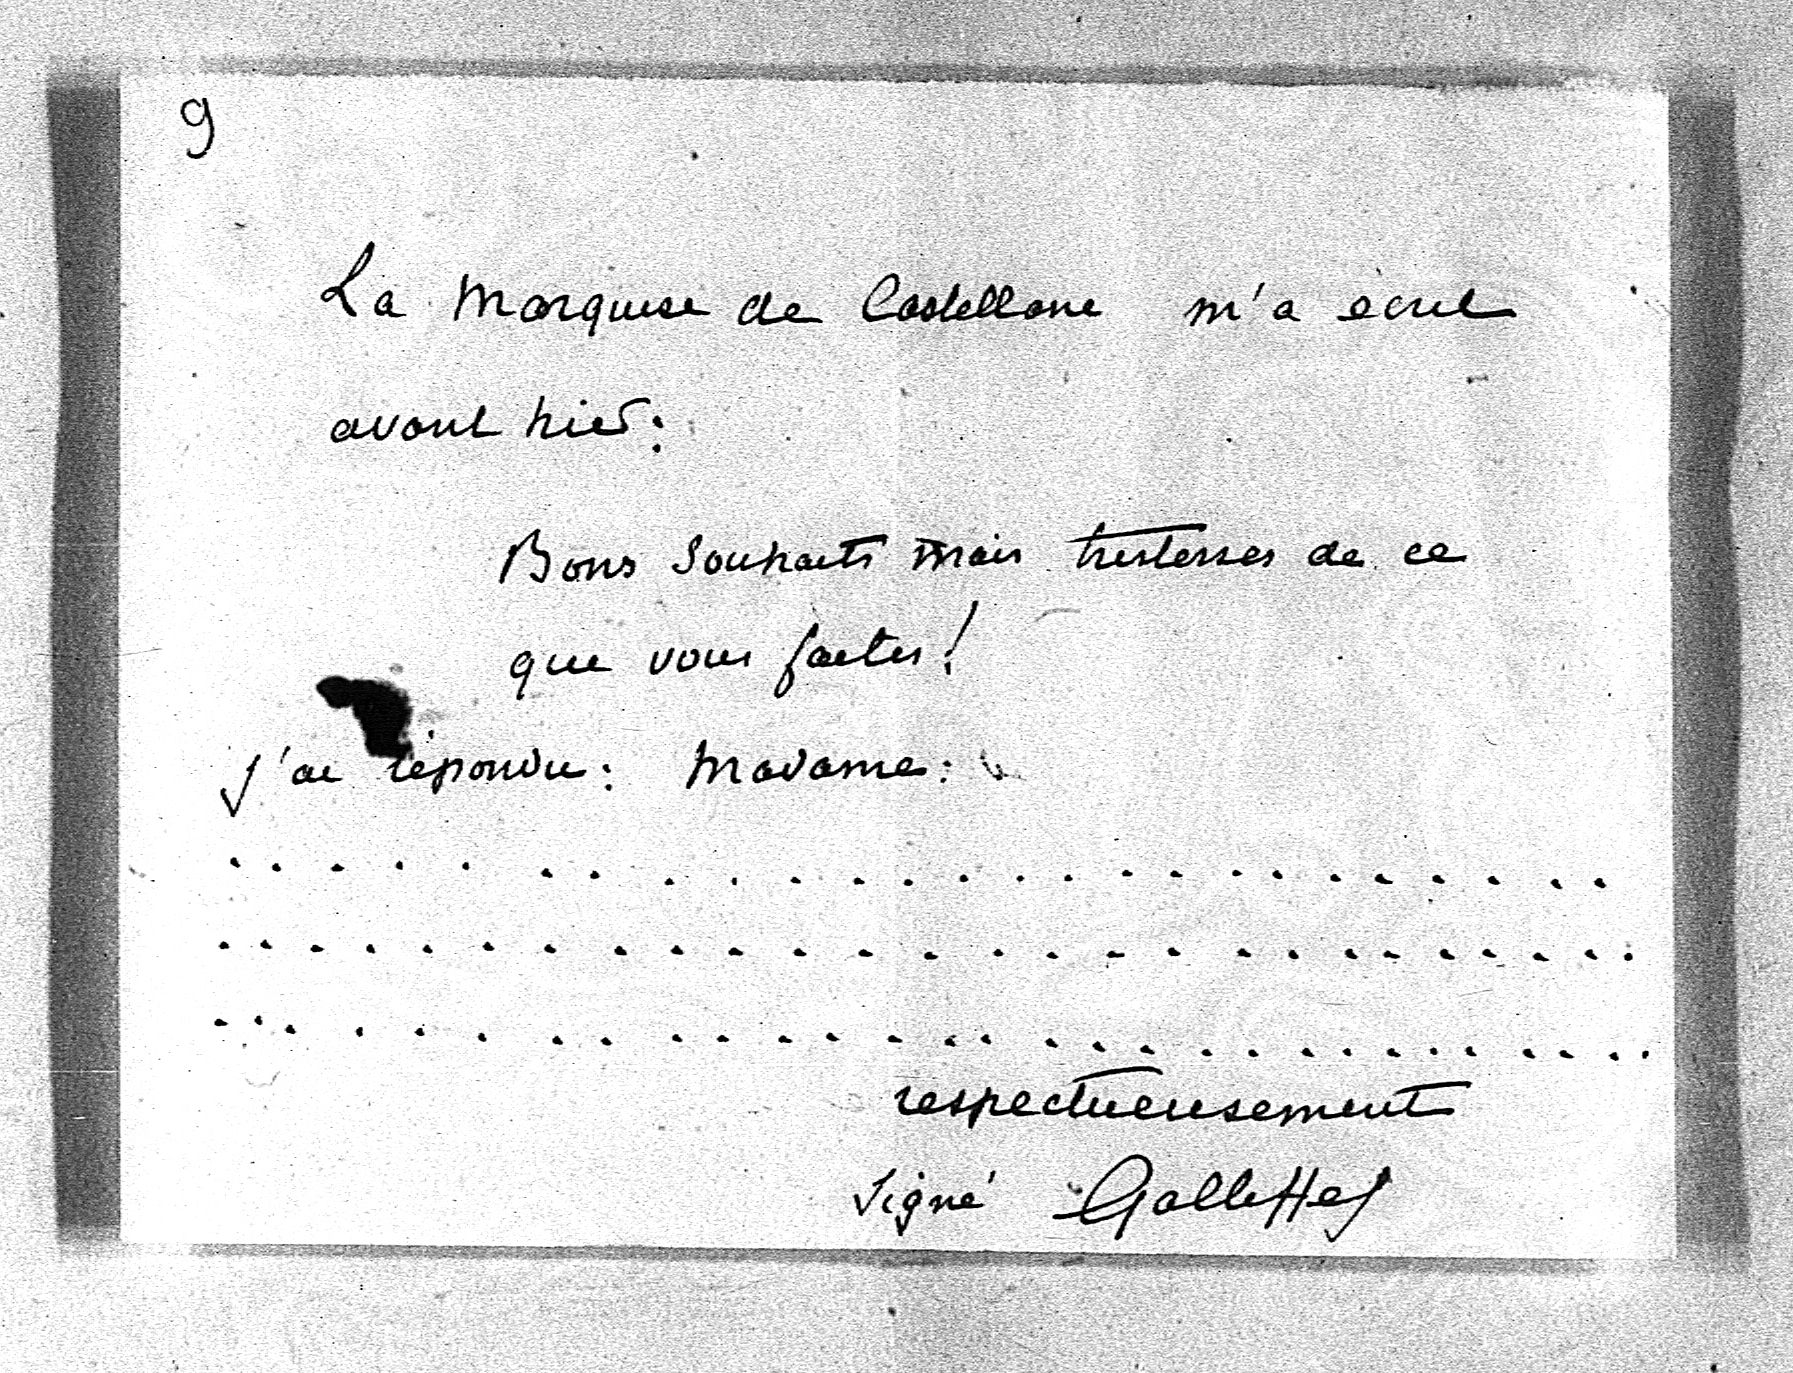 9
La Marquise de Castellane m'a écrit
avant hier:
Bons souhaits mais tristesses de ce
que vous faites!
J'ai répondu: Madame:
. . . . . . . . . . . . . . . . . . . . . . . .
. . . . . . . . . . . . . . . . . . . . . . . . .
. . . . . . . . . . . . . . . . . . . . . . . . .
respectueusement
Signé Galliffet